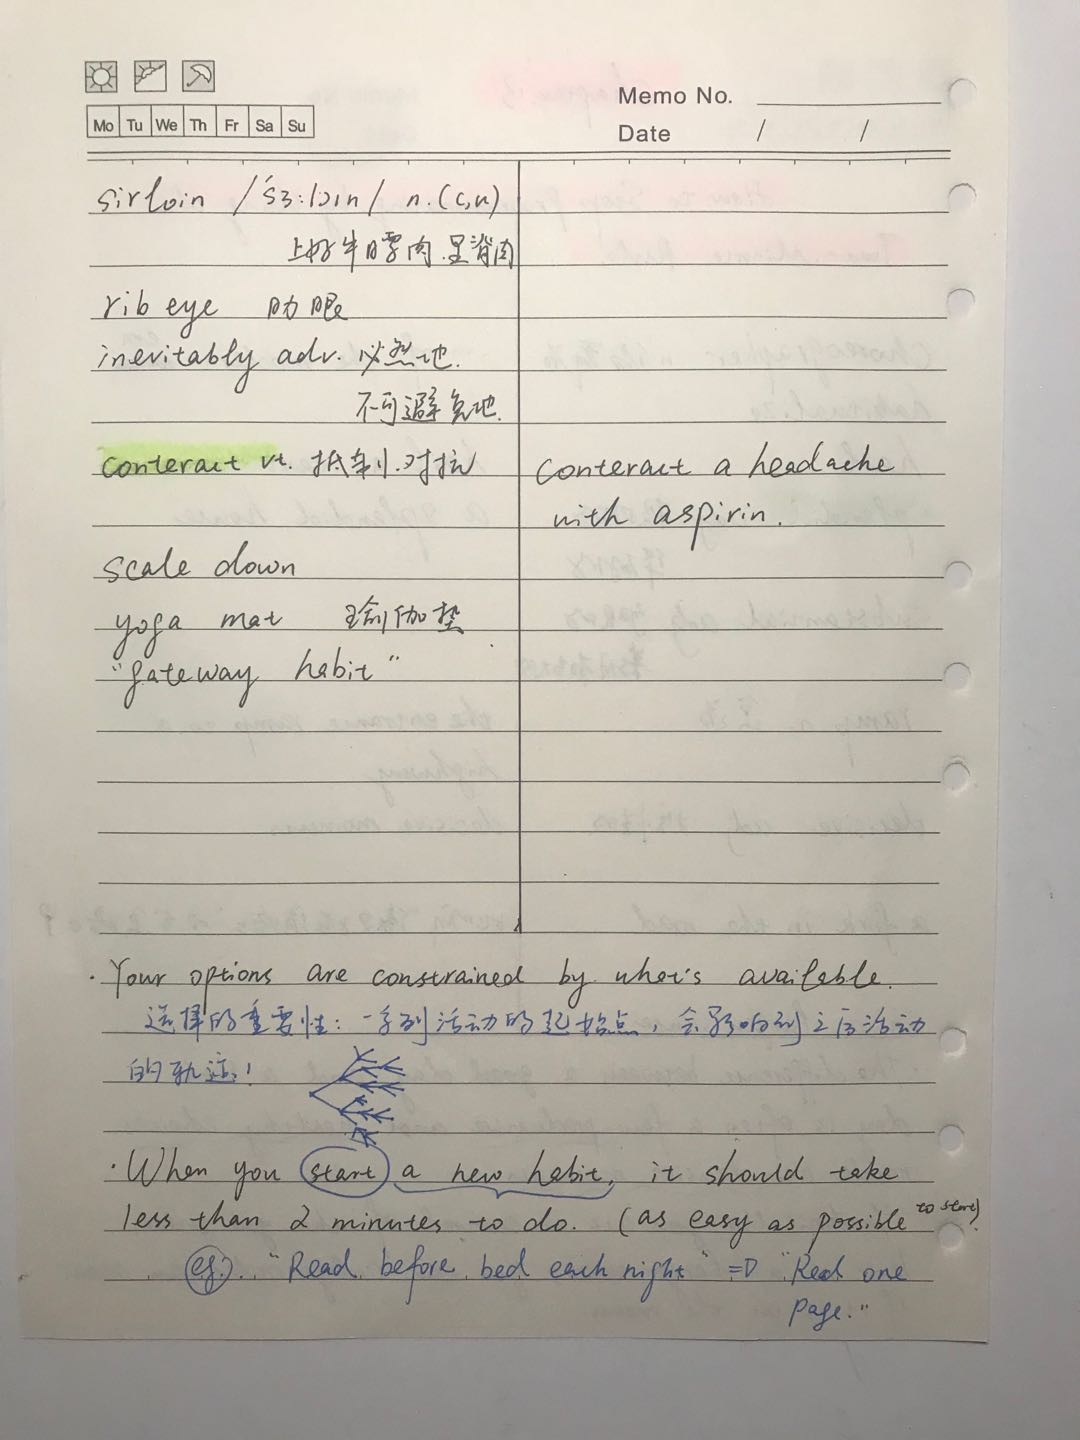 Memo No.
Mo Tu We Th Fr Sa Su
Date / /
sirloin /ˈsɜ:lɔɪn/ n.(c,u)
上好牛腰肉.里脊肉
rib eye 肋眼
inevitably adv. 必然地.
不可避免地.
conteract vt. 抵制.对抗
conteract a headache
with aspirin.
scale down
yoga mat 瑜伽垫
"gateway habit"
· Your options are constrained by what's available.
选择的重要性: 一系列活动的起始点, 会影响到之后活动
的轨迹!
· When you start a new habit, it should take
less than 2 minutes to do. (as easy as possible to start)
eg). "Read before bed each night" => "Read one
page."